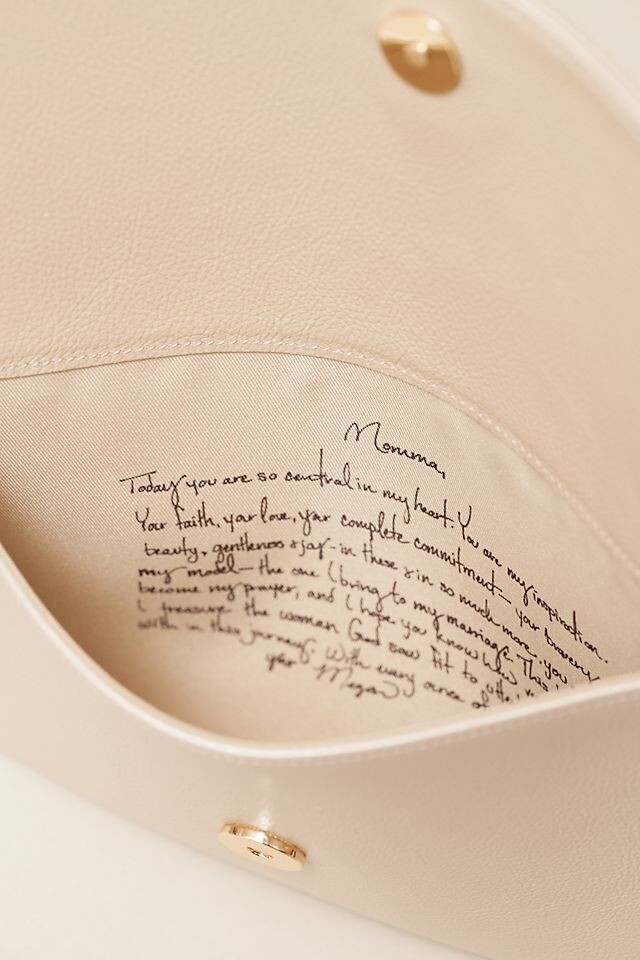 Momma,
Today you are so central in my heart. You are my inspiration.
Your faith, your love, your complete commitment— your bravery
beauty, gentleness & joy - in these & in so much more.. you
my model— the one I bring to my marriage. This
become my prayer, and I hope you know how
I treasure the woman God saw fit to
with in this journey. With every ounce of
your Megan